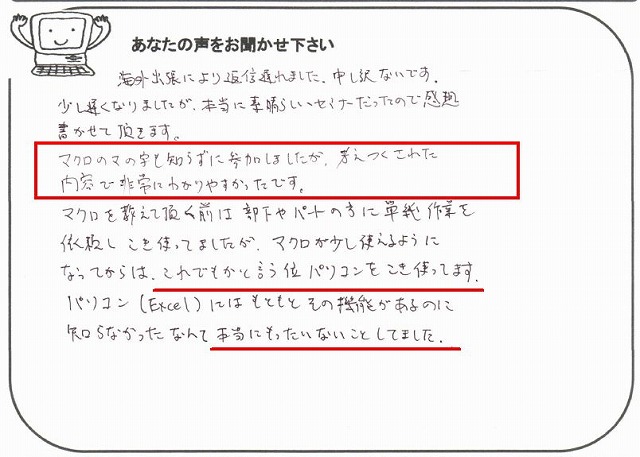 あなたの声をお聞かせ下さい
海外出張により返信遅れました。申し訳ないです。
少し遅くなりましたが、本当に素晴らしいセミナーだったので感想
書かせて頂きます。
マクロのマの字も知らずに参加しましたが、考えつくされた
内容で非常にわかりやすかったです。
マクロを教えて頂く前は部下やパートの方に単純作業を
依頼しこき使ってましたが、マクロが少し使えるように
なってからは、これでもかと言う位パソコンをこき使ってます。
パソコン(Excel)にはもともとその機能があるのに
知らなかったなんて本当にもったいないことしてました。